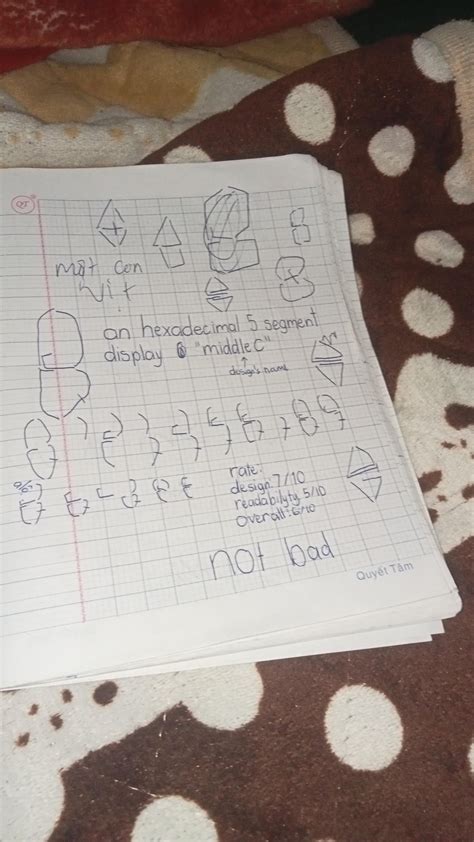 một con
vịt
an hexadecimal 5 segment
display "middle C"
design's name
rate:
design 7/10
readabilyty 5/10
overall: 6/10
not bad
Quyết Tâm